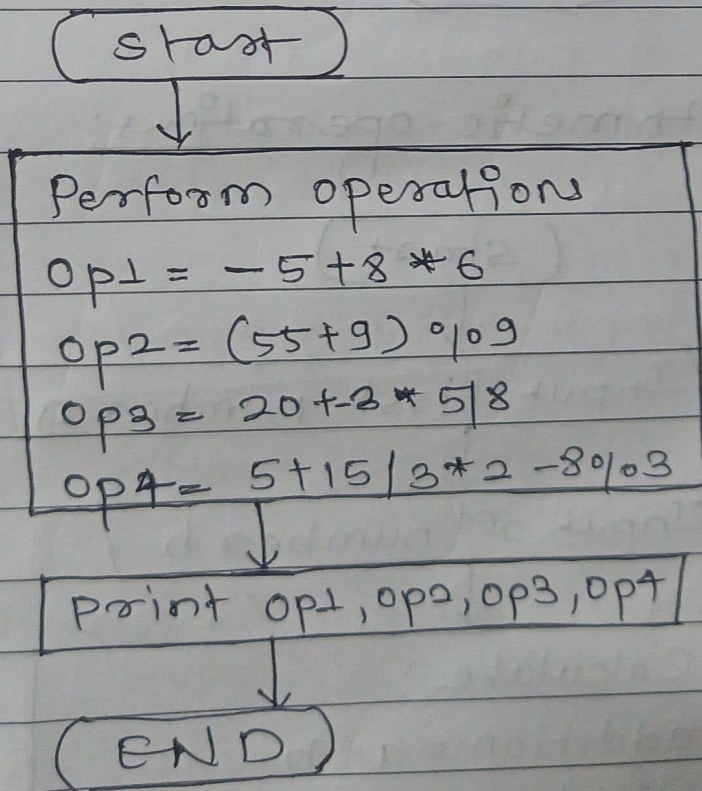 Start
Perform operations
Op1 = - 5 + 8 * 6
Op2 = (55+9) % 9
Op3 = 20 + -3 * 5/8
Op4 = 5 + 15 / 3 * 2 - 8 % 3
Print Op1, Op2, Op3, Op4
END